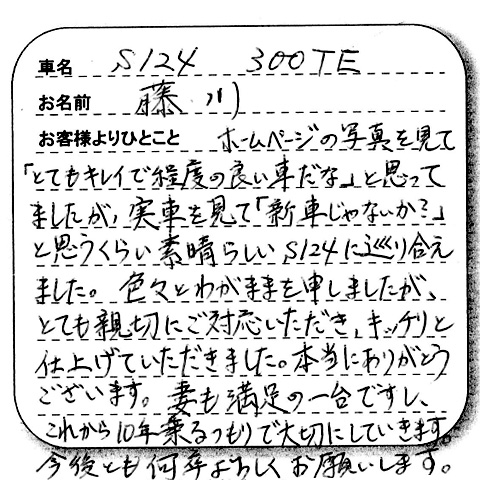 車名 S124 300TE
お名前 藤川
お客様よりひとこと ホームページの写真を見て
「とてもキレイで程度の良い車だな」と思って
ましたが、実車を見て「新車じゃないか?」
と思うくらい素晴らしいS124に巡り合え
ました。色々とわがままを申しましたが、
とても親切にご対応いただき、キッチリと
仕上げていただきました。本当にありがとう
ございます。妻も満足の一台ですし、
これから10年乗るつもりで大切にしていきます。
今後とも何卒よろしくお願いします。